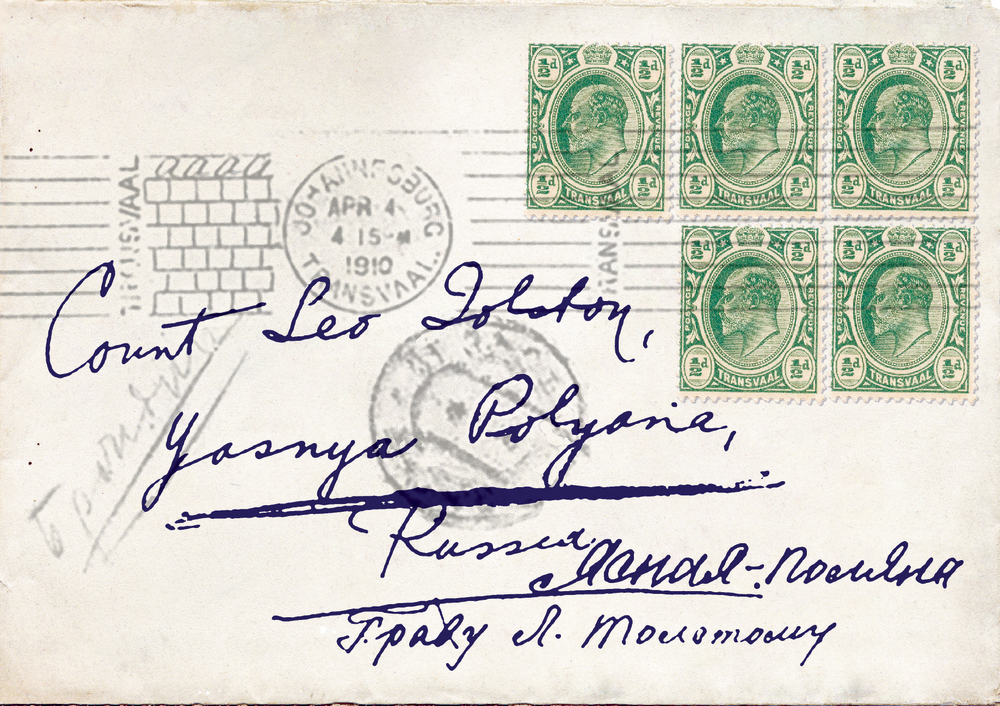 ½d ½d ½d ½d ½d ½d
POSTAGE REVENUE POSTAGE REVENUE POSTAGE REVENUE
½d ½d ½d ½d ½d ½d
TRANSVAAL TRANSVAAL TRANSVAAL
½d ½d ½d ½d
POSTAGE REVENUE POSTAGE REVENUE
½d ½d ½d ½d
TRANSVAAL TRANSVAAL
TRANSVAAL
JOHANNESBURG
APR 4
4 15
1910
TRANSVAAL
TRANSVAAL
Count Leo Tolstoy,
Yasnya Polyana,
Russia
Ясная-Поляна
Графу Л. Толстому